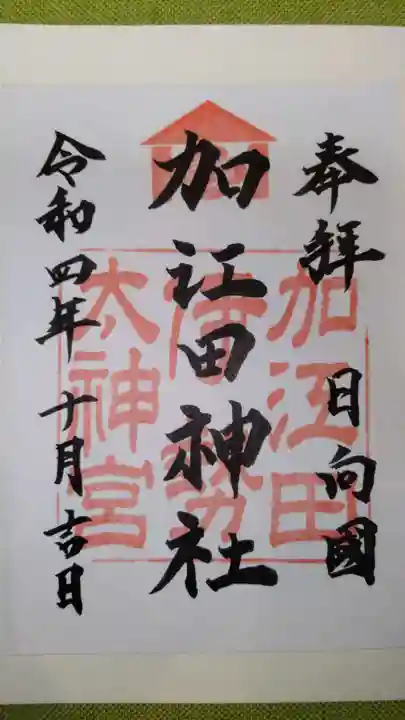 奉拝 日向國
加江田神社
令和四年 十月 吉日
加江田
伊勢
太神宮